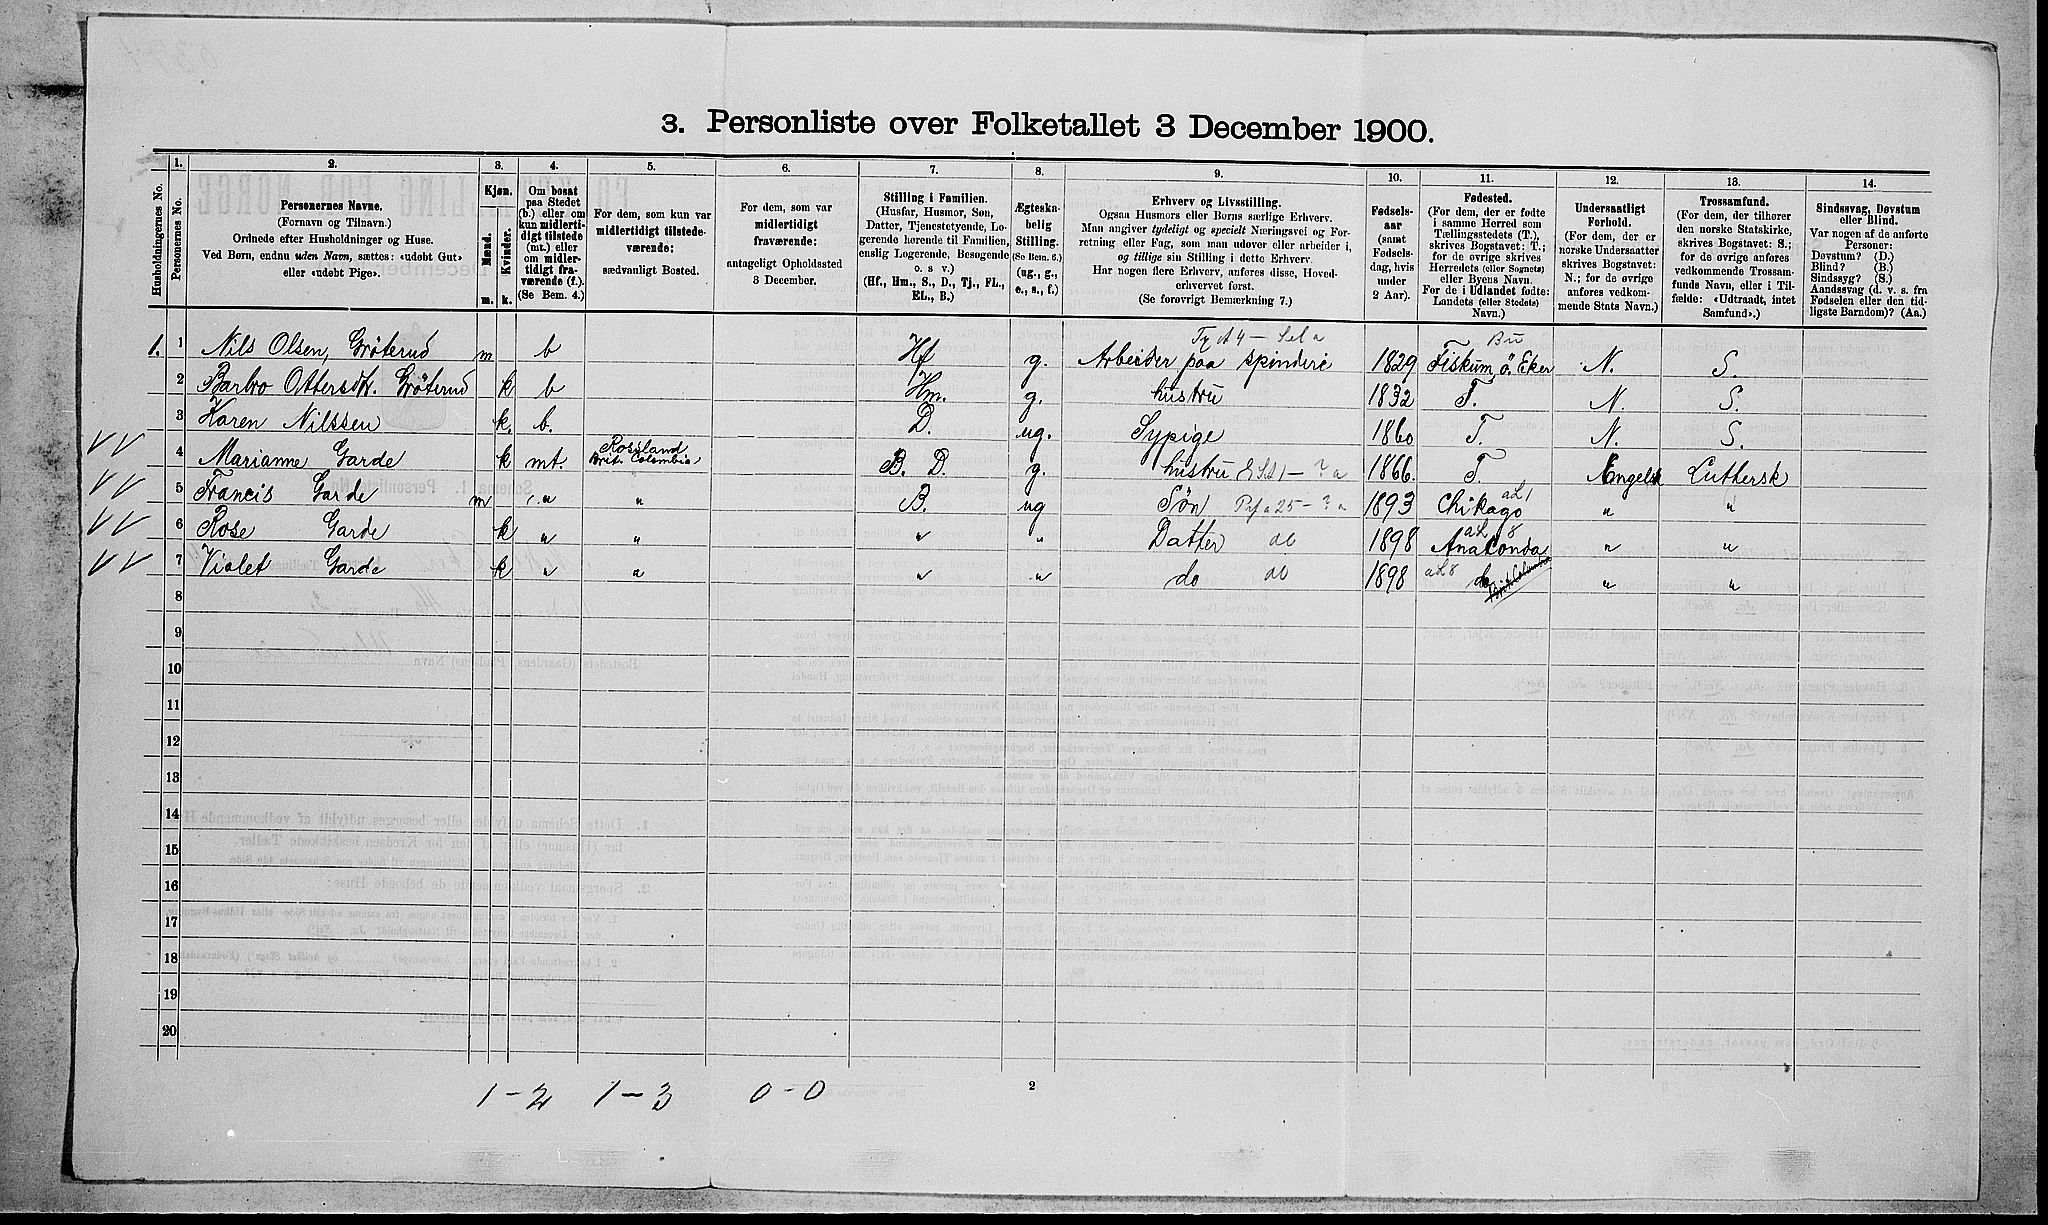 3. Personliste over Folketallet 3 December 1900.
1. 2. 3. 4. 5. 6. 7. 8. 9. 10. 11. 12. 13. 14.
Husholdningernes No.
Personernes No.
Personernes Navne.
(Fornavn og Tilnavn.)
Ordnede efter Husholdninger og Huse.
Ved Børn, endnu uden Navn, sættes: «udøbt Gut»
eller «udøbt Pige».
Kjøn.
Mænd.
Kvinder.
m. k.
Om bosat
paa Stedet
(b.) eller om
kun midlerti-
digt tilstede
(mt.) eller
om midler-
tidigt fra-
værende (f.).
(Se Bem. 4.)
For dem, som kun var
midlertidigt tilstede-
værende:
sædvanligt Bosted.
For dem, som var
midlertidigt
fraværende:
antageligt Opholdssted
3 December.
Stilling i Familien.
(Husfar, Husmor, Søn,
Datter, Tjenestetyende, Lo-
gerende hørende til Familien,
enslig Logerende, Besøgende
o. s v.)
(Hf., Hm., S., D., Tj., FL.,
EL., B.)
Ægteska-
belig
Stilling.
(Se Bem. 6.)
(ug., g.,
e., s., f.)
Erhverv og Livsstilling.
Ogsaa Husmors eller Børns særlige Erhverv.
Man angiver tydeligt og specielt Næringsvei og For-
retning eller Fag, som man udover eller arbeider i,
og tillige sin Stilling i dette Erhverv.
Har nogen flere Erhverv, anføres disse, Hoved-
erhvervet først.
(Se forøvrigt Bemærkning 7.)
Fødsels-
aar
(samt
Fødsels-
dag, hvis
under
2 Aar).
Fødested.
(For dem, der er fødte
i samme Herred som
Tællingsstedets (T.),
skrives Bogstavet: T.;
for de øvrige skrives
Herredets (eller Sognets)
eller Byens Navn.
For de i Udlandet fødte:
Landets (eller Stedets)
Navn.)
Undersaatligt
Forhold.
(For dem, der er
norske Undersaatter
skrives Bogstavet:
N.; for de øvrige
anføres vedkom-
mende Stats Navn.)
Trossamfund.
(For dem, der tilhører
den norske Statskirke,
skrives Bogstavet: S.;
for de øvrige anføres
vedkommende Trossam-
funds Navn, eller i Til-
fælde: «Udtraadt, intet
Samfund».)
Sindssvag, Døvstum
eller Blind.
Var nogen af de anførte
Personer:
Døvstum? (D.)
Blind? (B.)
Sindssyg? (S.)
Aandssvag (d. v. s. fra
Fødselen eller den tid-
ligste Barndom)? (Aa.)
1. 1 Nils Olsen, Gröterud m b Hf g. Arbeider paa spinderi 1829 Bu Fiskum, ö. Eker N. S.
2 Barbro Ottersdtr. Gröterud k b Hm. g. hustru 1832 T. N. S.
3 Karen Nilssen k. b. D. ug. Sypige 1860 T. N. S.
4 Marianne Garde k mt. Rossland Brit. Colombia B. D. g. hustru 1866. T. Engelsk Luthersk
5 Francis Garde m " " B. ug Søn 1893 Chikago " "
6 Rose Garde k " " " " Datter do 1898 Anakonda " "
7 Violet Garde k " " " " do do 1898 do Brit. Colombia " "
8
9
10
11
12
13
14
15
16
17
18
19
20
1-2 1-3 0-0
2